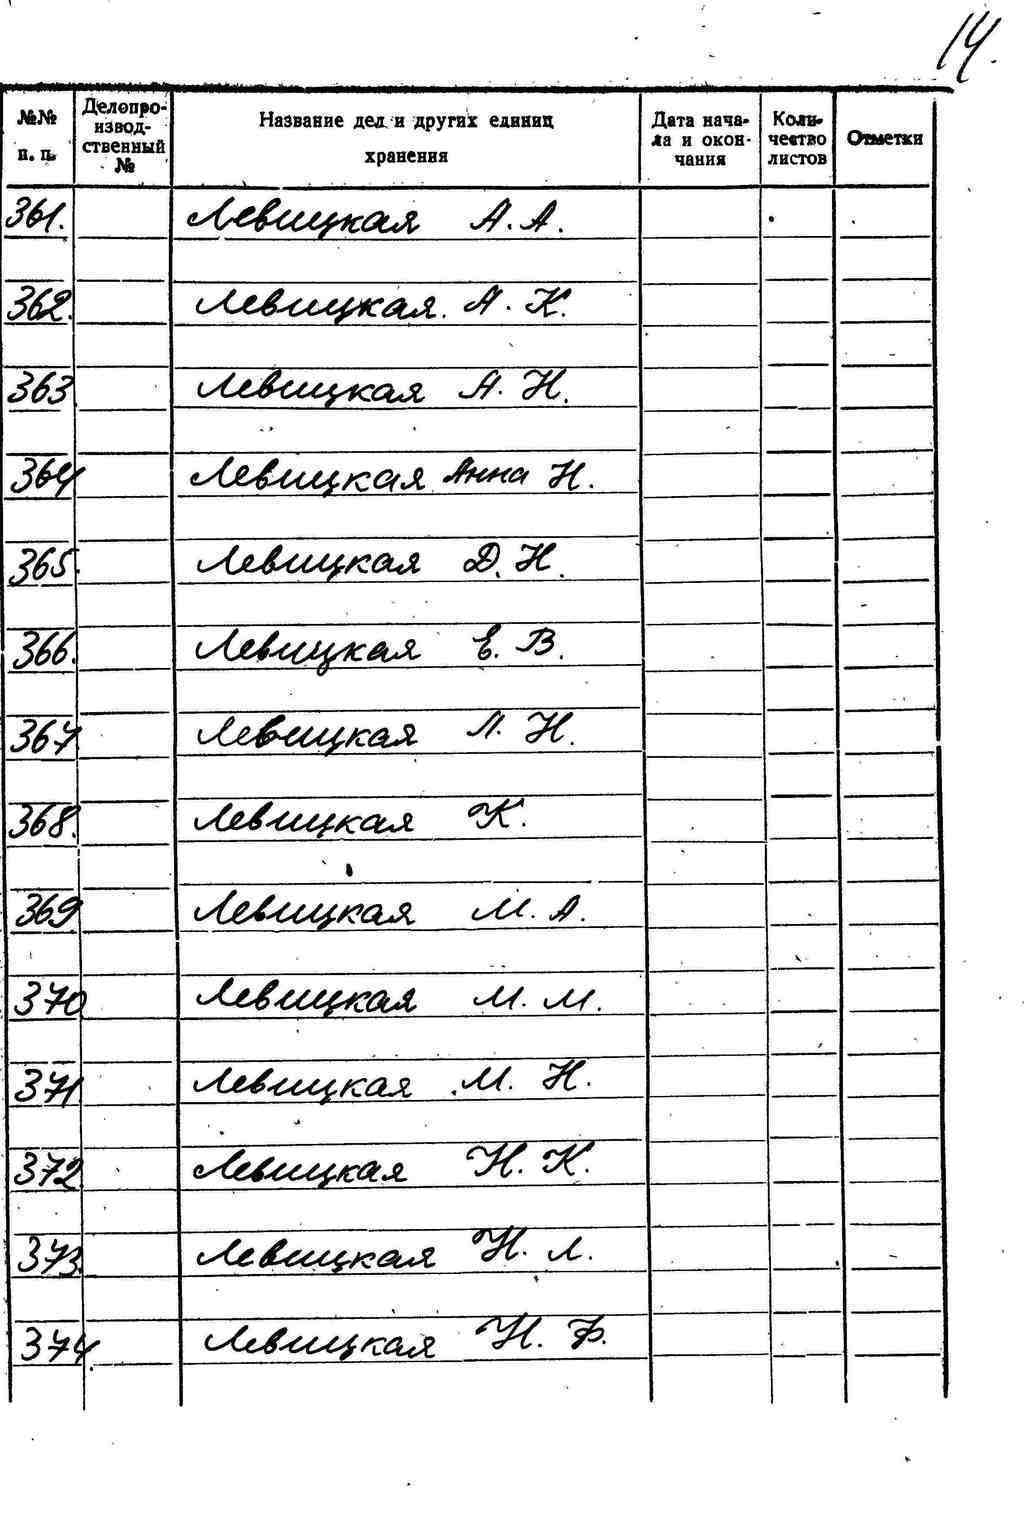 14.
№№ п. п.
Делопроизводственный №
Название дел и других единиц хранения
Дата начала и окончания
Количество листов
Отметки
361. Левицкая А. А.
362. Левицкая А. К.
363 Левицкая А. Н.
364 Левицкая Анна Н.
365. Левицкая Д. Н.
366. Левицкая Е. В.
367 Левицкая Л. Н.
368. Левицкая К.
369 Левицкая М. А.
370 Левицкая М. М.
371 Левицкая М. Н.
372 Левицкая Н. К.
373. Левицкая Н. Л.
374. Левицкая Н. Ф.